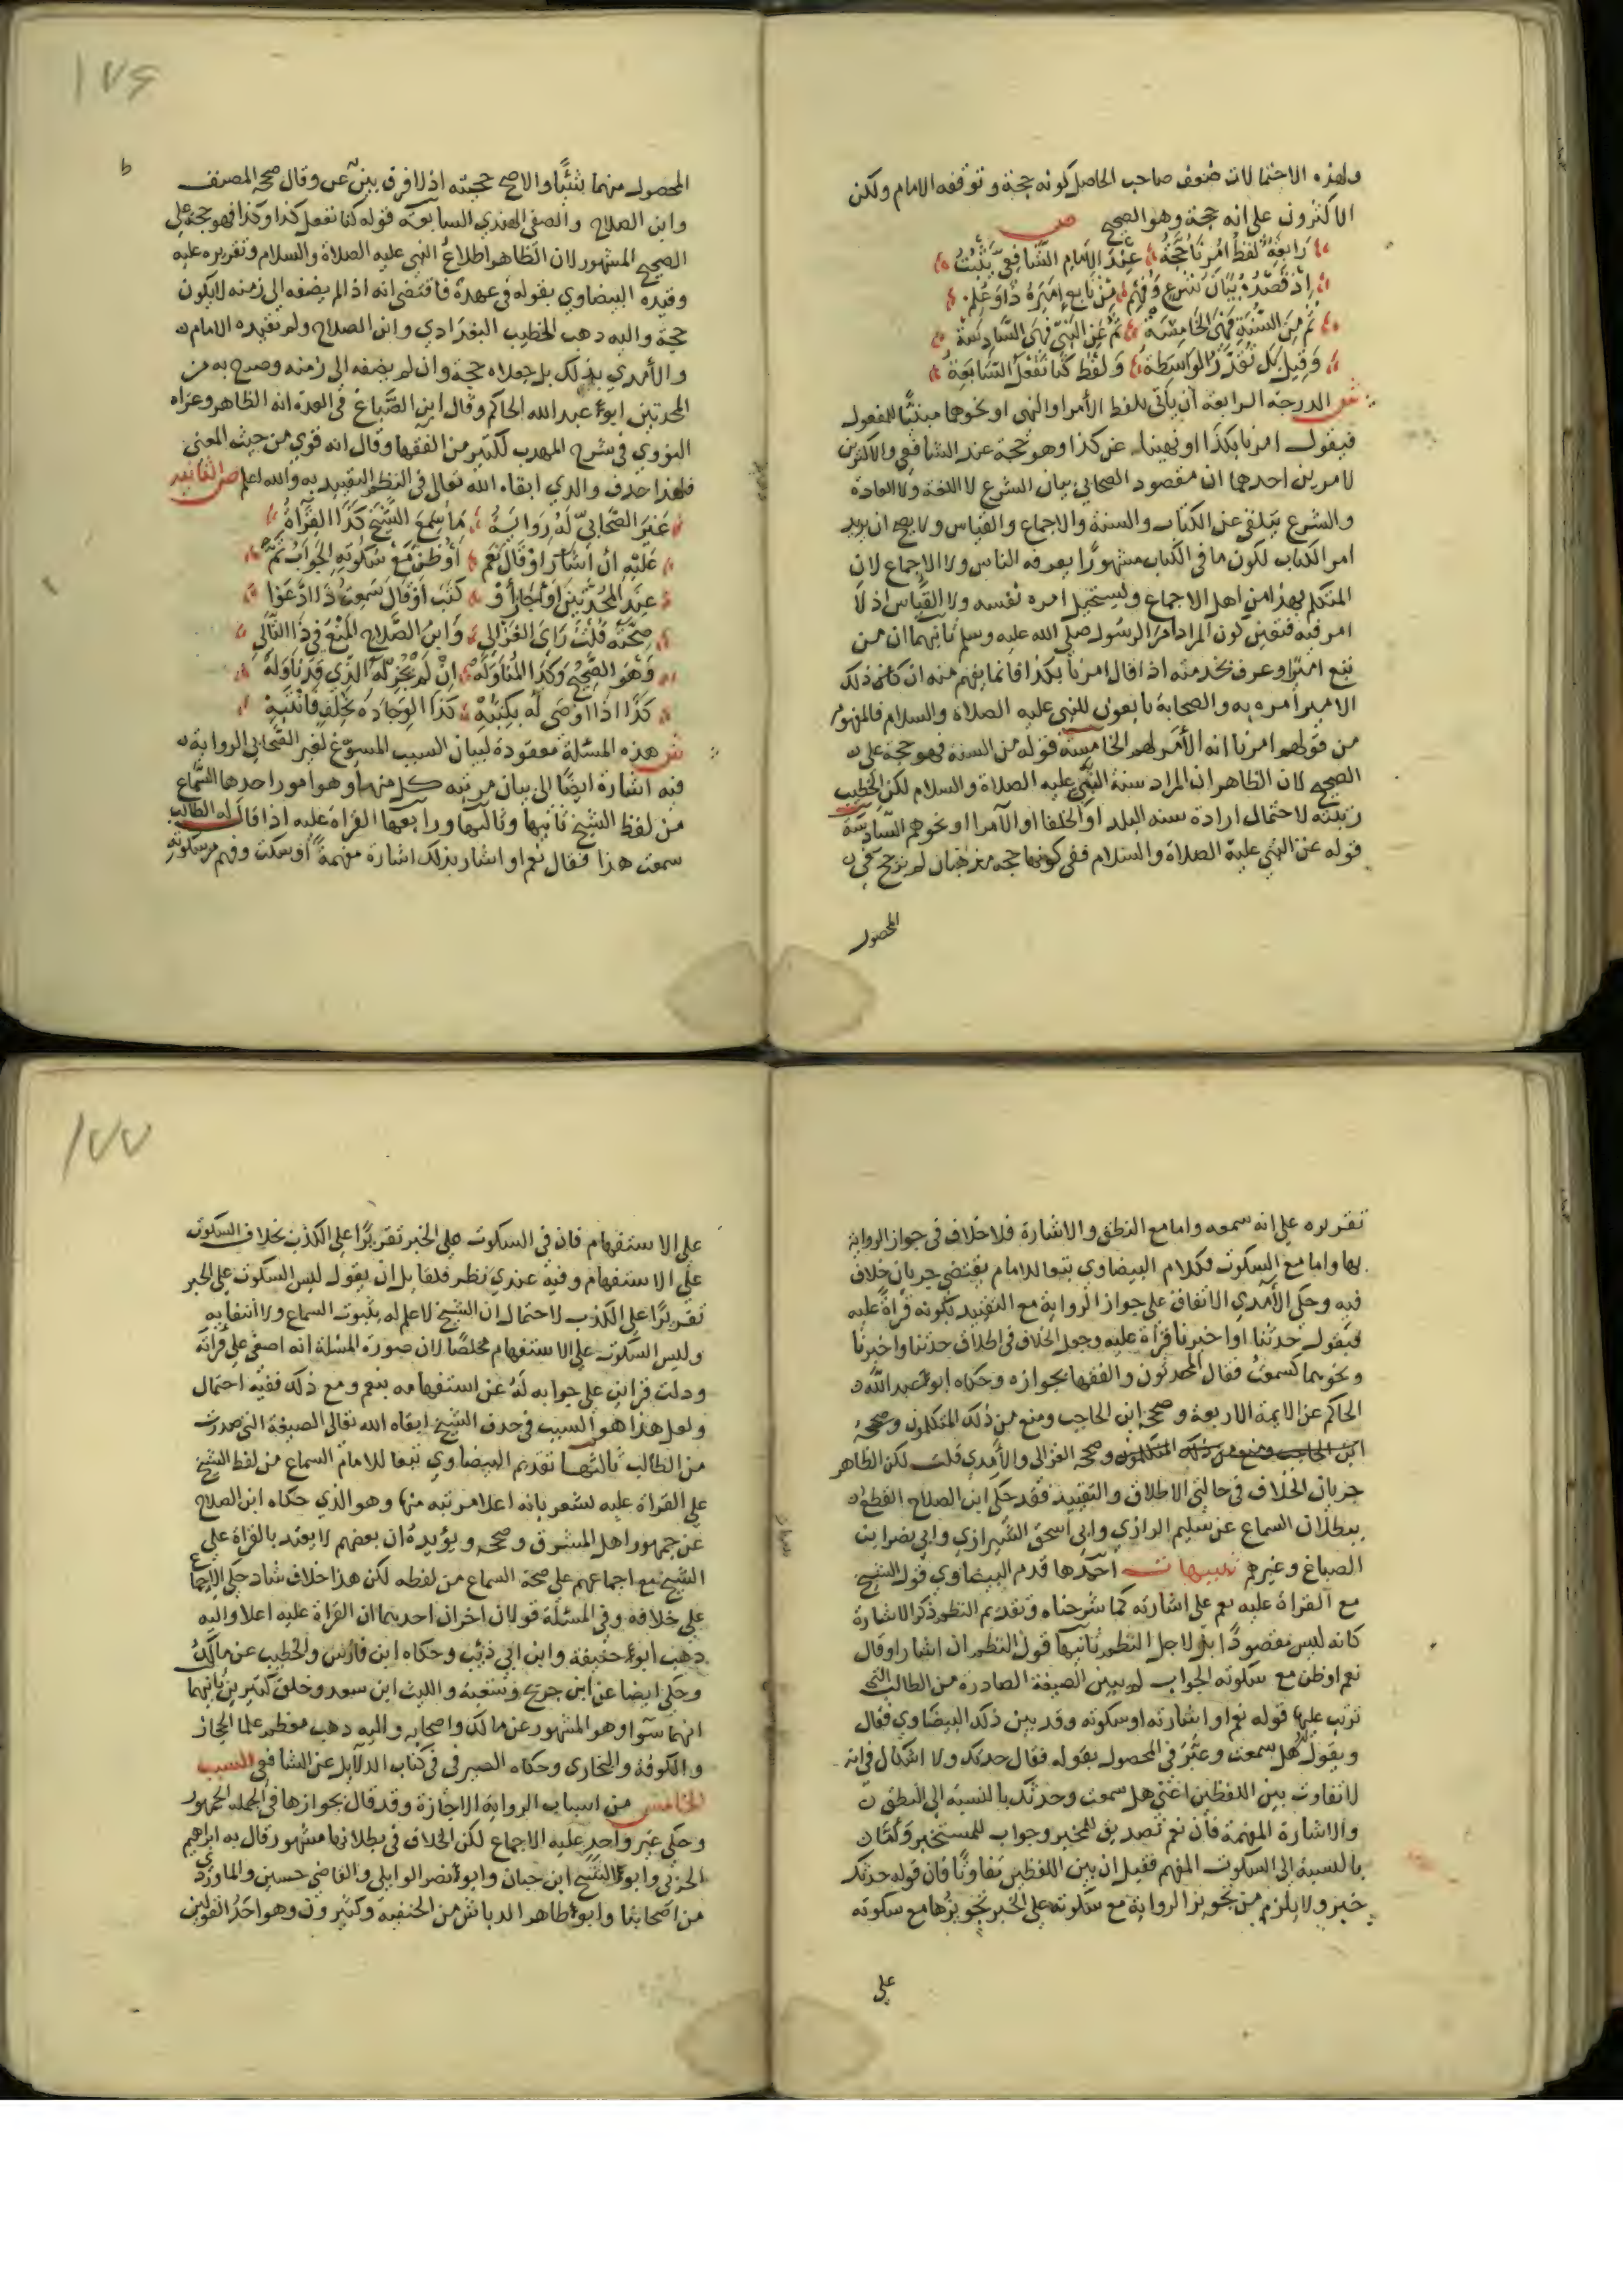 ولهذه الاحتمالات ضعف صاحب الحاصل كونه حجة وتوقفه الامام ولكن
الاكثرون على انه حجة وهو الصحيح ص
رَابِعَةٌ لفظُ اُمِرْنَا حُجَّةُ عِنْدَ الامَامِ الشَّافِعِيِّ يَثْبُتُ
اِذْ قَصْدُهُ بَيَانُ شَرْعٍ وَفُهِمْ مِنْ تَابِعٍ اَمِيْرَهُ ذَا وَعُلِمْ
ثُمَّ مِنَ السُّنَّةِ فَهْيَ الخَامِسَةْ ثُمَّ عَنِ النَّبِيِّ فَهْيَ السَّادِسَةْ
وَقِيلَ بَلْ تُقَدَّرُ الوَاسِطَةُ وَلَفْظُ كُنَّا نَفْعَلُ السَّابِعَةُ
ش الدرجة الرابعة ان ياتي بلفظ الأمر او النهي او نحوهما مبنيًّا للمفعول
فيقول امرنا بكذا او نهينا عن كذا وهو حجة عند الشافعي والاكثرين
لامرين احدهما ان مقصود الصحابي بيان الشرع لا اللغة ولا العادة
والشرع يتلقى عن الكتاب والسنة والاجماع والقياس ولا يصح ان يريد
امر الكتاب لكون ما في الكتاب مشهورًا يعرفه الناس ولا الاجماع لان
المتكلم بهذا من اهل الاجماع ويستحيل امره نفسه ولا القياس اذ لا
امر فيه فتعين كون المراد امر الرسول صلى الله عليه وسلم ثانيهما ان من
تبع اميرًا وعرف بخدمته اذا قال امرنا بكذا فانما يفهم منه ان كان ذلك
الامير امره به والصحابة تابعون للنبي عليه الصلاة والسلام فالمفهوم
من قولهم امرنا انه الأمر لهم الخامسة قوله من السنة فهو حجة على
الصحيح لان الظاهر ان المراد سنة النبي عليه الصلاة والسلام لكن الخطيب
رتبته لاحتمال ارادة سنة البلد او الخلفا او الأمرا او نحوهم السادسة
قوله عن النبي عليه الصلاة والسلام ففي كونها حجه مذهبان لم يرجح في
المحصول
١٧٦
المحصول منهما شيئًا والاصح حجيته اذ لا فرق بين عن وقال صححه المصنف
وابن الصلاح والصفي الهندي السابعة قوله كنا نفعل كذا وكذا فهو حجة على
الصحيح المشهور لان الظاهر اطلاعُ النبي عليه الصلاة والسلام وتقريره عليه
وقيده البيضاوي بقوله في عهده فاقتضى انه اذا لم يضفه الى زمنه لا يكون
حجة واليه ذهب الخطيب البغدادي وابن الصلاح ولم يقيده الامام
والأمدي بذلك بل جعلاه حجة وان لم يضفه الى زمنه وصرح به من
المحدثين ابو عبد الله الحاكم وقال ابن الصَّباغ في العدة انه الظاهر وعزاه
النووي في شرح المهذب لكثير من الفقها وقال انه قوي من حيث المعنى
فلهذا حذف والدي ابقاه الله تعالى في النظم التقييد به والله اعلم ص الثانيه
غَيرَ الصَّحَابِيّ لَهُ رِوَايَةُ مَا سَمِعَ الشَّيْخَ كَذَا القِرَاةُ
عَلَيْهِ اِنْ اَشَارَ اوْ قَالَ نَعَمْ اَوْ ظَنَّ مَعْ سُكُوتِهِ الجَوَابُ ثَمَّ
عِنْدَ المُحَدِّثِينَ اَوْ اَجَازَ اَوْ كَتَبَ اَوْ قَالَ سَمِعتُ ذَا ادَّعَوْا
صِحَّتَهُ قُلْتُ رَايَ الغَزَّالِي وَابنُ الصَّلَاحِ المَنْعَ فِي ذَا التَّالِي
وَهْوَ الصَّحِيحُ وَكَذَا المُنَاوَلَةْ اِنْ لَمْ يُجِزْ لَهُ الَّذِي قَدْ نَاوَلَهْ
كَذَا اذَا اَوْصَى لَهُ بِكُتْبِهْ كَذَا الوِجَادَةُ بِخُلْفٍ فَانْتَبِهْ
ش هذه المسئلة معقودة لبيان السبب المسوّغ لغير الصّحابي الرواية
فيه اشارة ايضًا الى بيان مرتبه كل منها وهو امور احدها السَّماع
من لفظ الشيخ ثانيها وثالثها ورابعها القراة عليه اذا قال له الطالب
سمعت هذا فقال نعم او اشار بذلك اشارة مفهمةً او سكت وفهم من سكوته
تقريره على انه سمعه واما مع النطق والاشارة فلا خلاف في جواز الرواية
بها واما مع السكوت فكلام البيضاوي تبعا للامام يقتضي جريان خلاف
فيه وحكى الأمدي الاتفاق على جواز الرواية مع التقييد بكونه قراةً عليه
فيقول حدثنا او اخبرنا قراة عليه وجعل الخلاف في اطلاق حدثنا واخبرنا
ونحوهما كسمعتُ فقال المحدثون والفقها بجوازه وحكاه ابو عبد الله
الحاكم عن الايمة الاربعة وصححه ابن الحاجب ومنع من ذلك المتكلمون وصححه
ابن الحاجب ومنع من ذلك المتكلمون وصححه الغزالي والأمدي قلت لكن الظاهر
جريان الخلاف في حالتي الاطلاق والتقييد فقد حكى ابن الصلاح القطع
ببطلان السماع عن سليم الرازي وابي اسحق الشيرازي وابي نصر ابن
الصباغ وغيرهم تنبيهات احدها قدم البيضاوي قول الشيخ
مع القراة عليه نعم على اشارته كما شرحناه وتقديم النظم ذكر الاشارة
كانه ليس مقصودًا بل لاجل النظم ثانيها قول النظم ان اشار او قال
نعم او ظن مع سكوته الجواب لم يبين الصيغة الصادرة من الطالب التي
ترتب عليها قوله نعم او اشارته او سكوته وقد بين ذلك البيضاوي فقال
ويقول له هل سمعت وعبّر في المحصول بقوله فقال حدثك ولا اشكال في انه
لا تفاوت بين اللفظين اعني هل سمعت وحدثك بالنسبة الى النطق
والاشارة المفهمة فان نعم تصديق للمخبر وجواب للمستخبر
بالنسبة الى السكوت المفهم فقيل ان بين اللفظين تفاوتًا فان قوله حدثك
خبر ولا يلزم من تجويز الرواية مع سكوته على الخبر تجويزها مع سكوته
على
١٧٧
على الاستفهام فان في السكوت على الخبر تقريرًا على الكذب بخلاف السكوت
على الاستفهام وفيه عندي نظر فلقايل ان يقول ليس السكوت على الخبر
تقريرًا على الكذب لاحتمال ان الشيخ لا علم له بثبوت السماع ولا انتفايه
وليس السكوت على الاستفهام مخلصًا لان صورة المسئلة انه اصغى على قرائه
ودلت قراين على جوابه لهُ عن استفهامه بنعم ومع ذلك ففيه احتمال
ولعل هذا هو السبب في حذف الشيخ ابقاه الله تعالى الصيغة التي صدرت
من الطالب ثالثها تقديم البيضاوي تبعا للامام السماع من لفظ الشيخ
على القراة عليه يشعر بانه اعلا مرتبه منها وهو الذي حكاه ابن الصلاح
عن جمهور اهل المشرق وصححه ويؤيدهُ ان بعضهم لا يعتد بالقراة على
الشيخ مع اجماعهم على صحة السماع من لفظه لكن هذا خلاف شاد حكي الاجماع
على خلافه وفي المسئلة قولان اخران احديهما ان القراة عليه اعلا واليه
ذهب ابو حنيفة وابن ابي ذئب وحكاه ابن فارس والخطيب عن مالك
وحكي ايضا عن ابن جريج وشعبة والليث ابن سعد وخلق كثيرين ثانيهما
انهما سَوآ وهو المشهور عن مالك واصحابه واليه ذهب معظم علما الحجاز
والكوفة والبخاري وحكاه الصيرفي في كتاب الدلايل عن الشافعي السبب
الخامس من اسباب الرواية الاجازة وقد قال بجوازها في الجمله الجمهور
وحكي غير واحد عليه الاجماع لكن الخلاف في بطلانها مشهور قال به ابراهيم
الحربي وابو الشيخ ابن حبان وابو نصر الوايلي والقاضي حسين والماوردي
من اصحابنا وابو طاهر الدباش من الحنفية وكثيرون وهو احد القولين